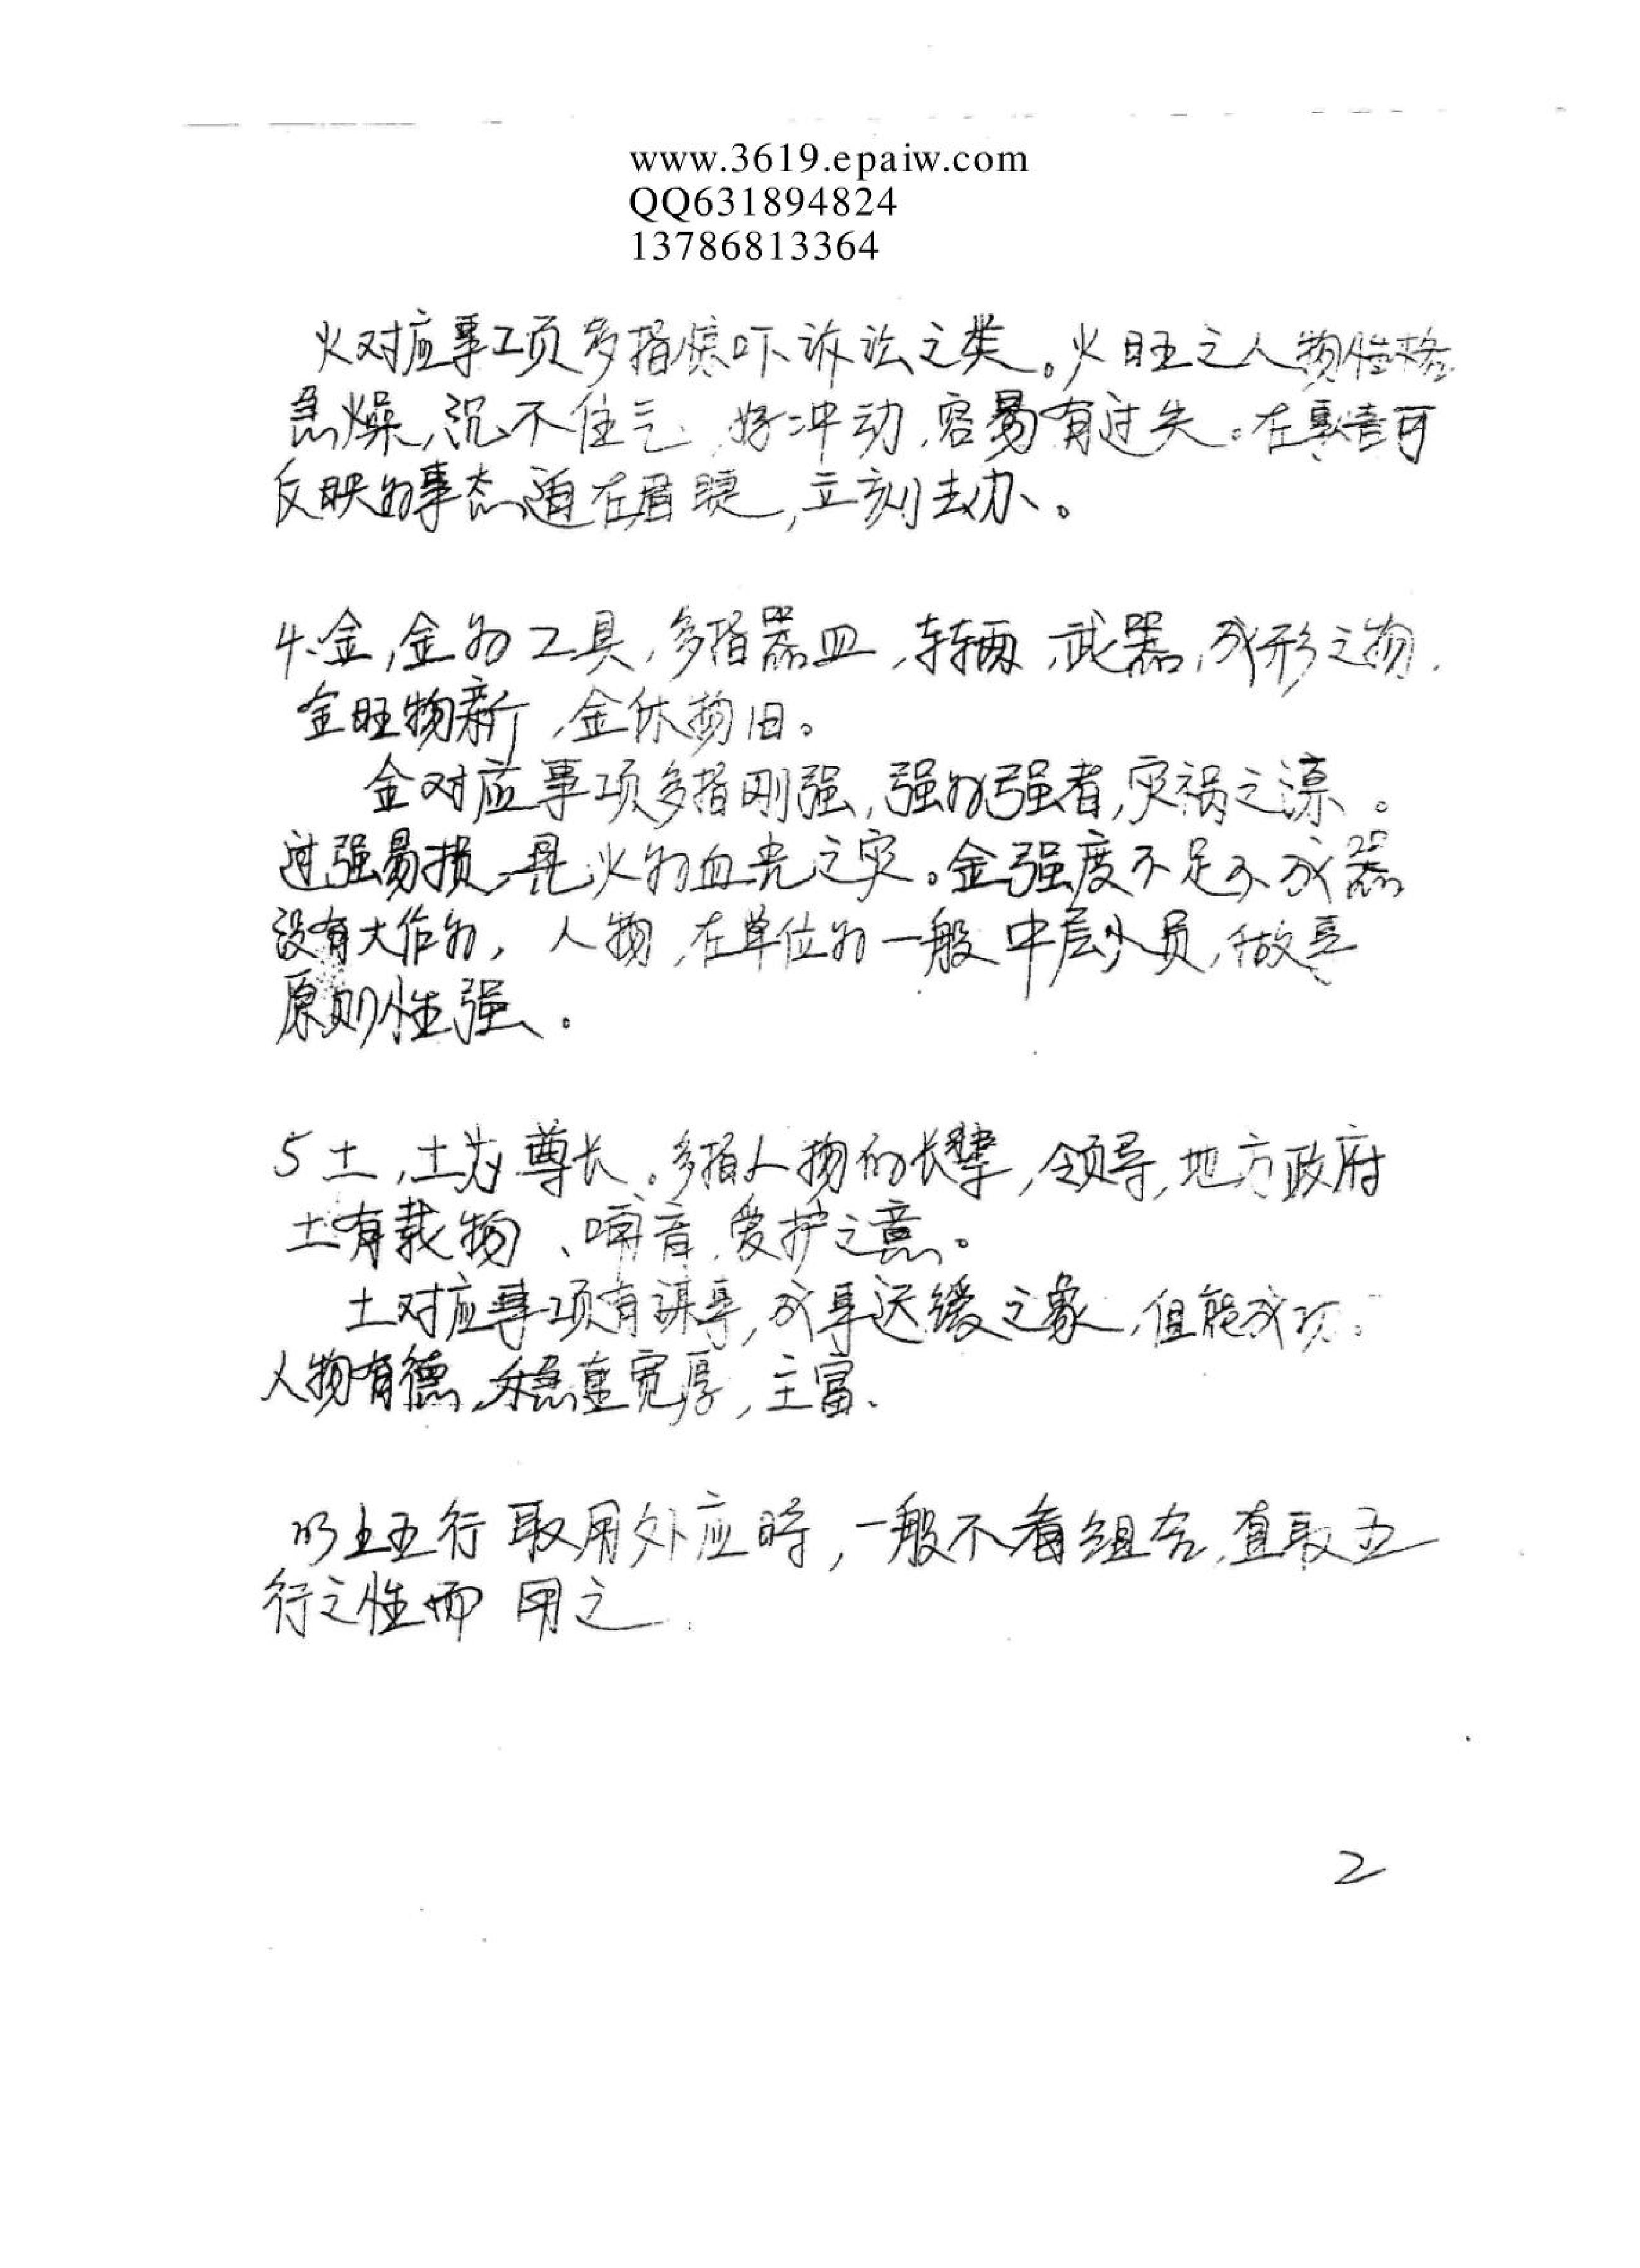 www.3619.epaiw.com
QQ631894824
13786813364
火对应事项多指惊吓诉讼之类。火旺之人物性格
急燥,沉不住气,好冲动,容易有过失。在事情可
反映为事态迫在眉睫,立刻去办。
4、金,金为工具,多指器皿,车辆,武器,成形之物.
金旺物新,金休物旧。
金对应事项多指刚强,强为强者,灾祸之源。
过强易损,见火为血光之灾。金强度不足不成器
没有大作为,人物,在单位为一般中层人员,做事
原则性强。
5土,土为尊长。多指人物的长辈,领导,地方政府
土有载物、哺育,爱护之意。
土对应事项有谋事,成事迟缓之象,但能成功。
人物有德,稳重宽厚,主富、
以上五行取用外应时,一般不看组合,直取五
行之性而用之.
2